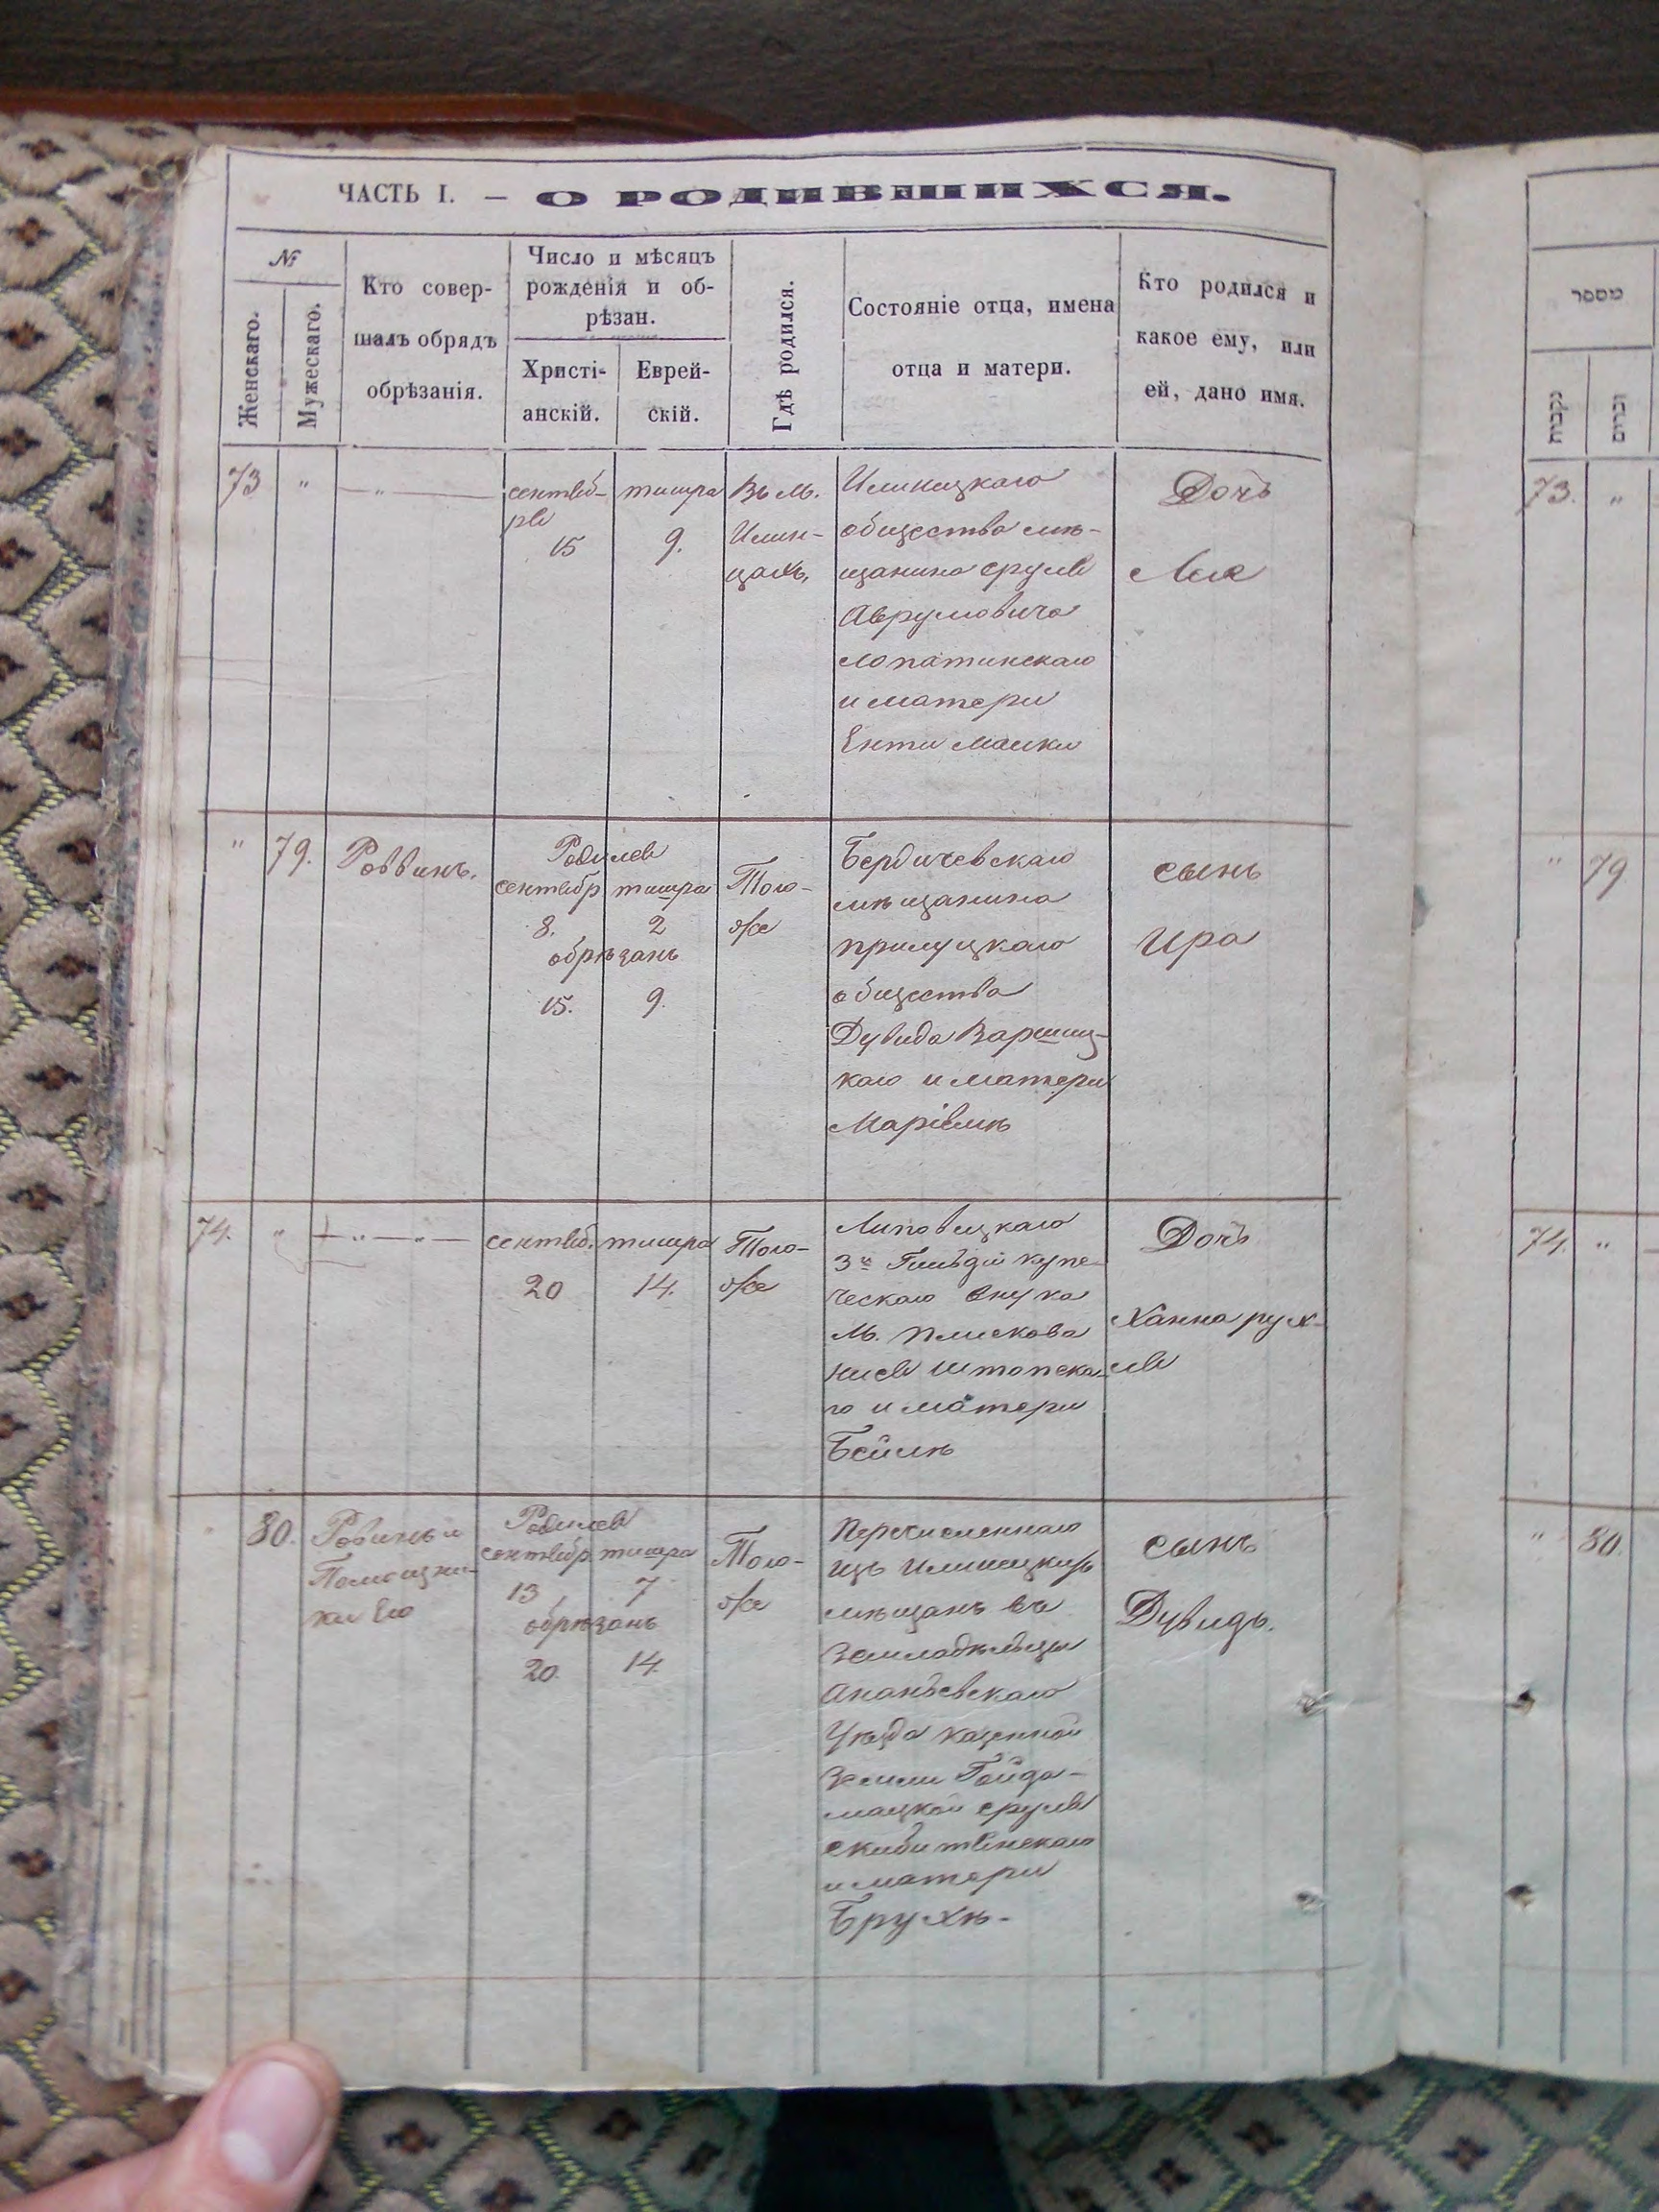 ЧАСТЬ I. — О РОДИВШИХСЯ.
№
Женскаго.
Мужескаго.
Кто совер-
шалъ обрядъ
обрѣзанія.
Число и мѣсяцъ
рожденія и об-
рѣзан.
Христі-
анскій.
Еврей-
скій.
Гдѣ родился.
Состояніе отца, имена
отца и матери.
Кто родился и
какое ему, или
ей, дано имя.
73
"
— " —
сентяб-
ря
15
тишра
9.
Въ м.
Илин-
цахъ.
Илинецкаго
общества мѣ-
щанина Сруля
Аврумовича
Лопатинскаго
и матери
Енти Малки
Дочь
Лея
"
79.
Раввинъ.
Родился
сентябр
тишра
8.
2
обрѣзанъ
15.
9.
Того-
же
Бердичевскаго
мѣщанина
Прилуцкаго
общества
Дувида Варшиц-
каго и матери
Маріемъ
сынъ
Ира
74.
"
— " — " —
сентяб.
20
тишра
14.
Того-
же
Липовецкаго
3й Гильдіи купе-
ческаго внука
М. Плискова
Нися Штопска-
го и матери
Бейлѣ
Дочь
Ханна рух-
ля
"
80.
Равинъ и
Помощни-
ки Его
Родился
сентябр
тишра
13
7
обрѣзанъ
20.
14.
Того-
же
Перечисленнаго
изъ Илинецкихъ
мѣщанъ въ
Земледѣльцы
Ананьевскаго
Уѣзда казенной
Земли Гайда-
мацкой Сруля
Скибитянскаго
и матери
Брухѣ-
сынъ
Дувидъ.
מספר
נקבות
זכרים
73.
"
"
79
74.
"
"
80.